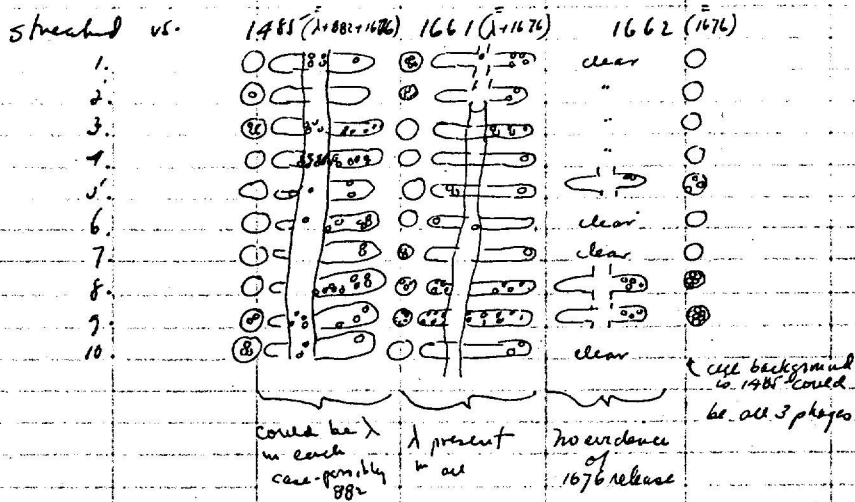 streaked vs. 1485 (λ+882+1676) 1661 (λ+1676) 1662 (1676)
1. clear
2. "
3. "
4. "
5.
6. clear
7. clear
8.
9.
10. clear
could be λ
in each
case - possibly
882
λ present
in all
no evidence
of
1676 release
background
is 1485 could
be all 3 phages